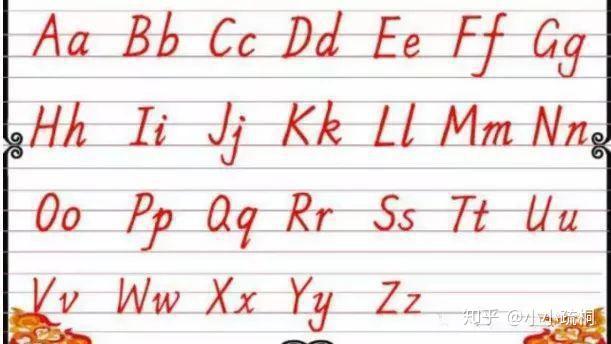 Aa Bb Cc Dd Ee Ff Gg
Hh Ii Jj Kk Ll Mm Nn
Oo Pp Qq Rr Ss Tt Uu
Vv Ww Xx Yy Zz
知乎 @小小疏桐